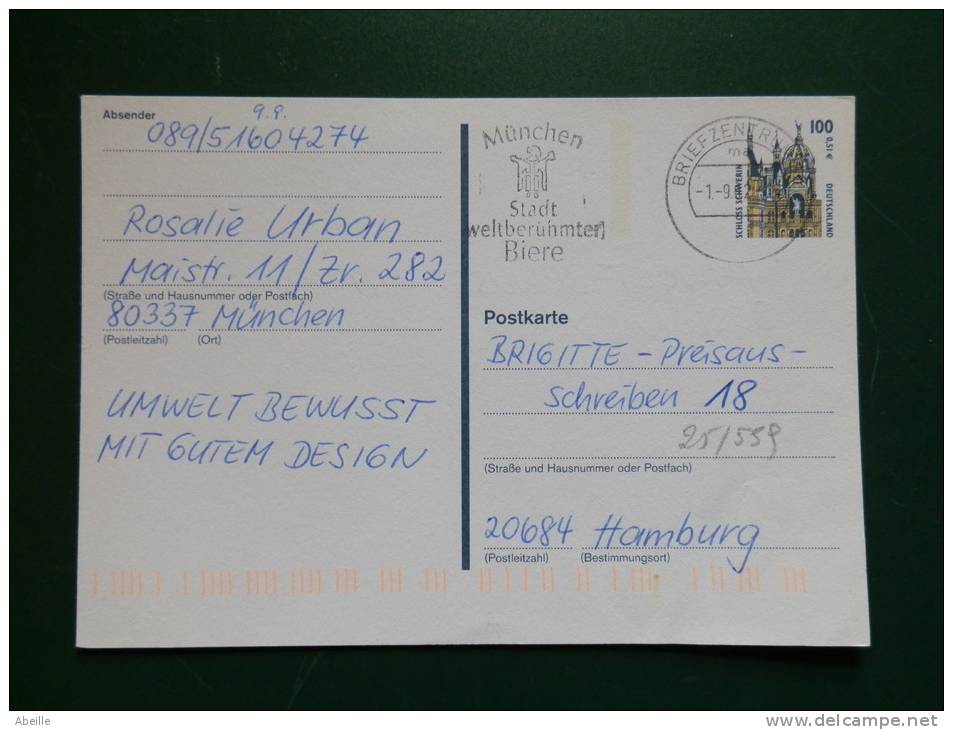 Absender
9.9.
089/51604274
Rosalie Urban
Maistr. 11/Zr. 282
(Straße und Hausnummer oder Postfach)
80337 München
(Postleitzahl) (Ort)
UMWELT BEWUSST
MIT GUTEM DESIGN
München
Stadt
weltberühmter
Biere
BRIEFZENTRUM
-1.-9.02
100
0,51€
SCHLOSS SCHWERIN
DEUTSCHLAND
Postkarte
BRIGITTE - Preisaus-
schreiben 18
25/559
(Straße und Hausnummer oder Postfach)
20684 Hamburg
(Postleitzahl) (Bestimmungsort)
Abeille
delcampe.net